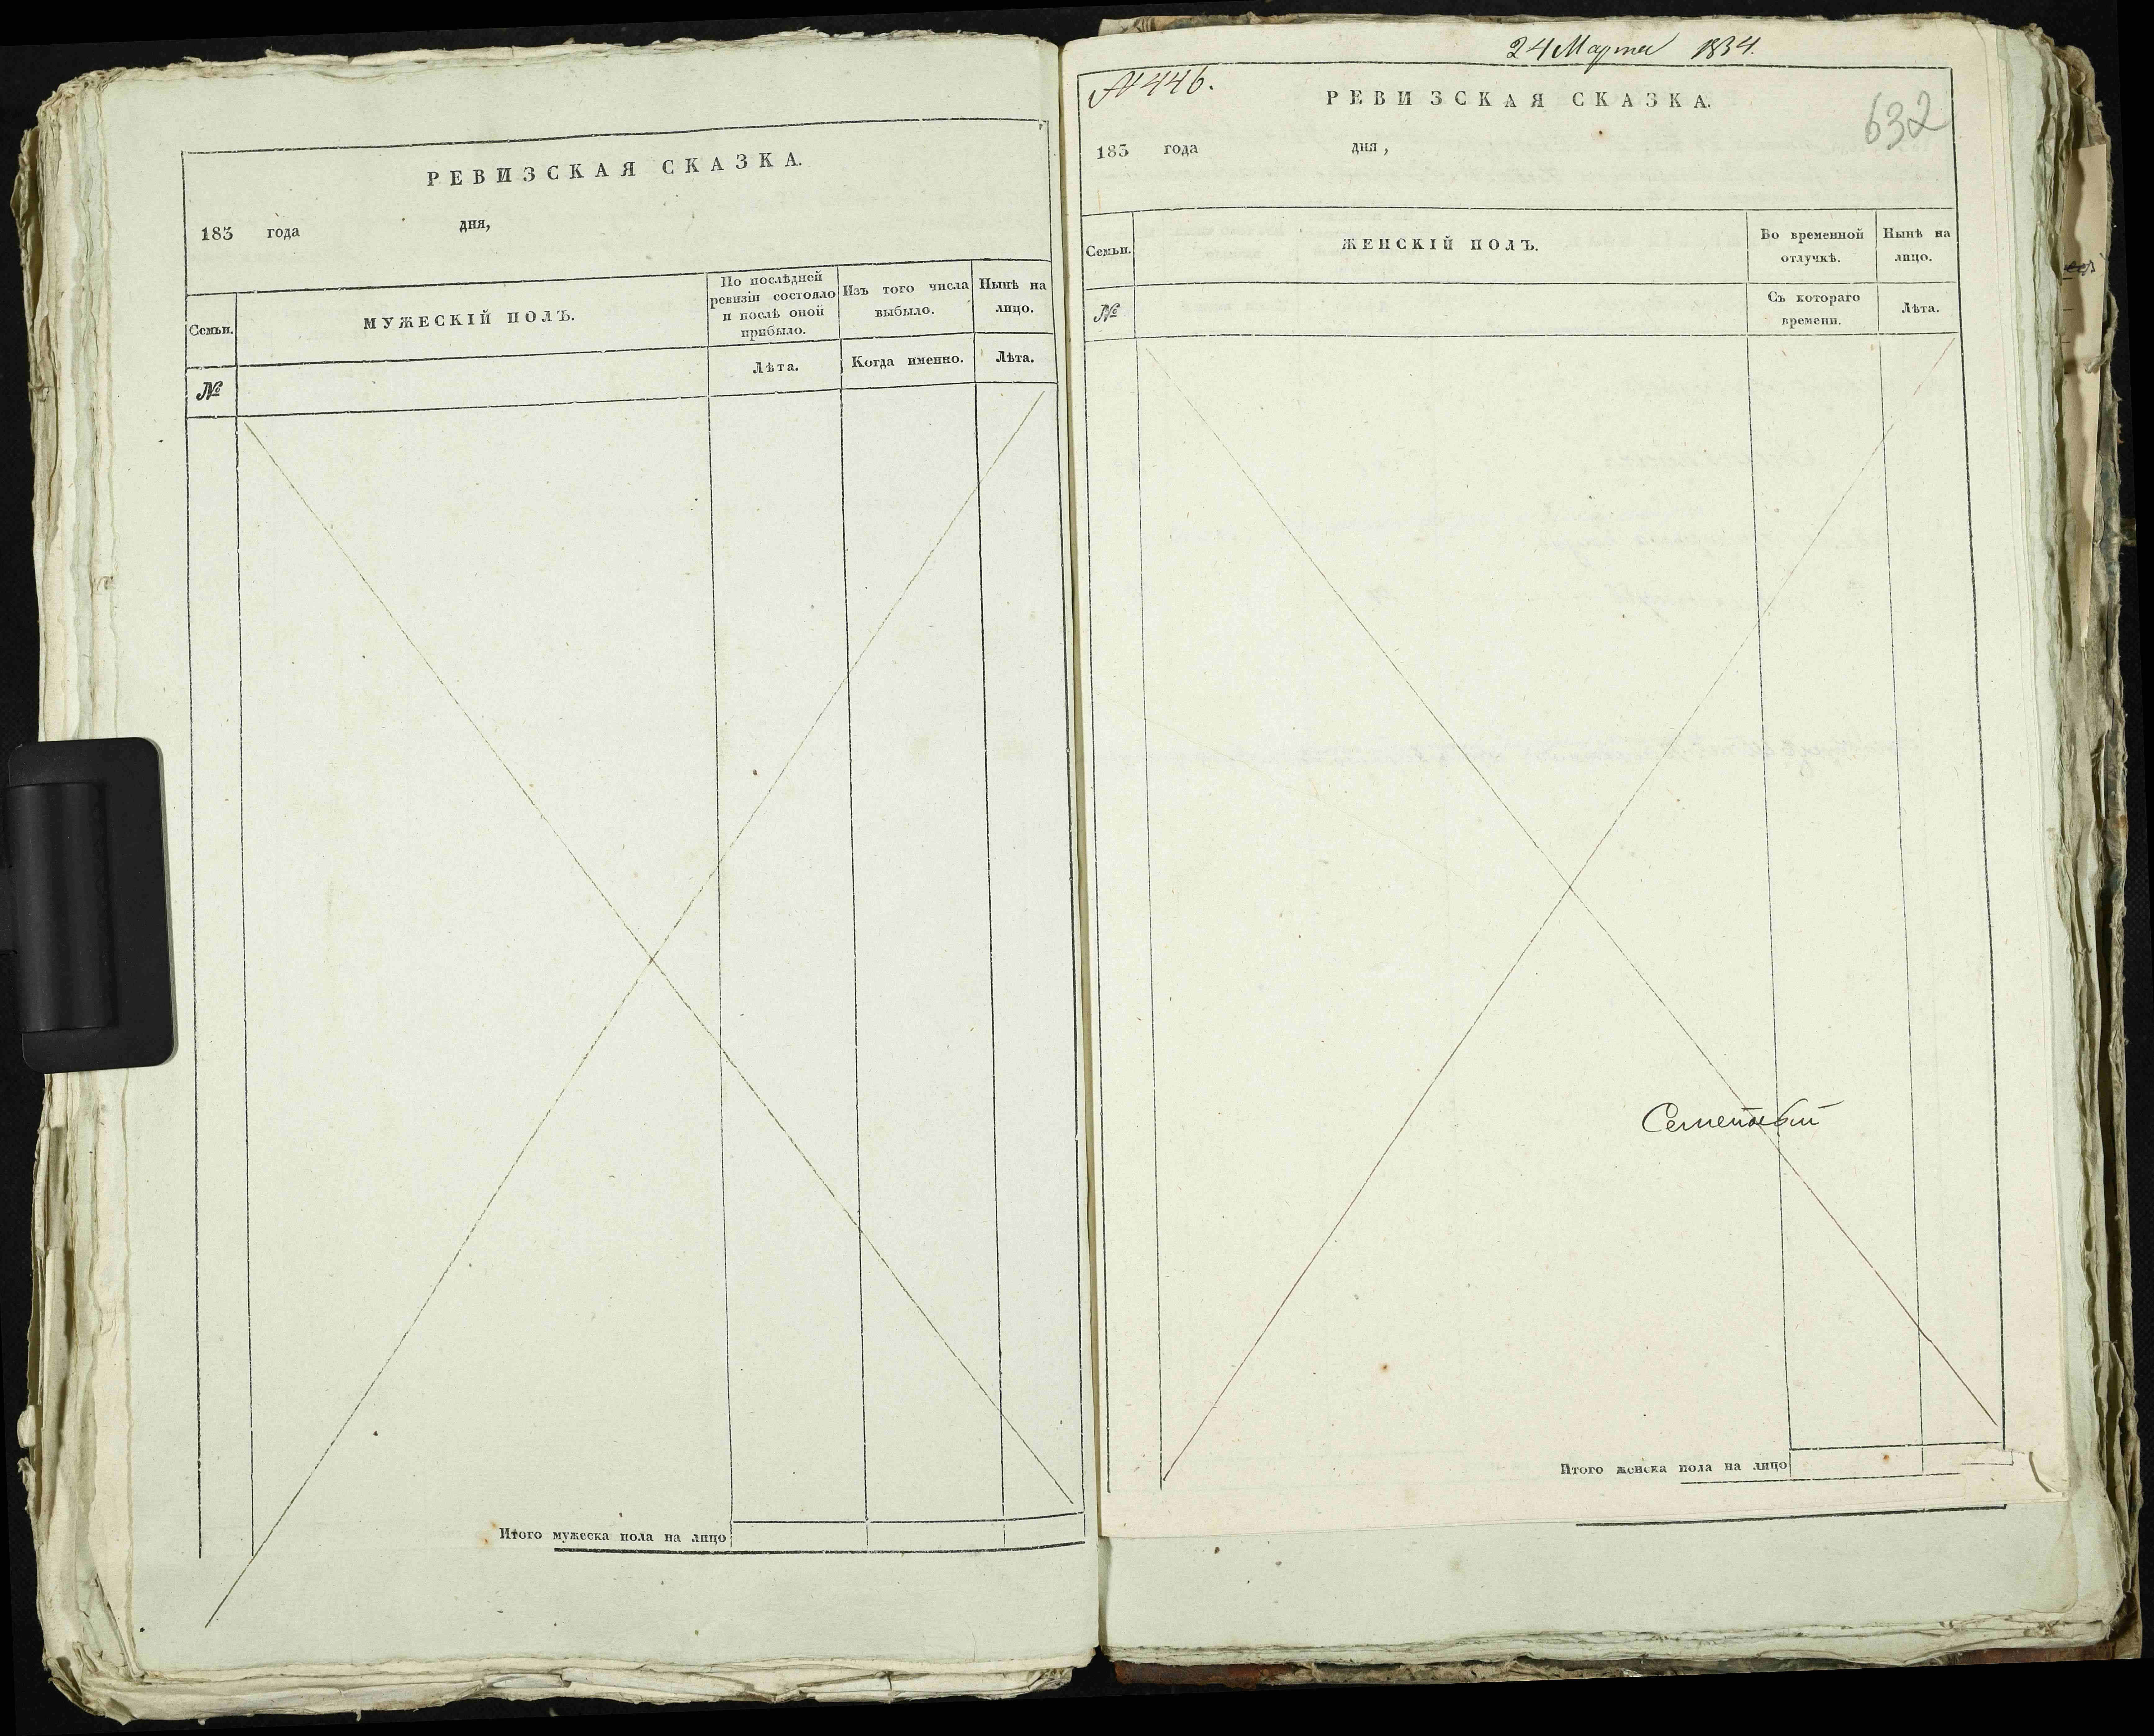 РЕВИЗСКАЯ СКАЗКА.
183 года дня,
Семьи.
МУЖЕСКІЙ ПОЛЪ.
По послѣдней
ревизіи состояло
и послѣ оной
прибыло.
Изъ того числа
выбыло.
Нынѣ на
лицо.
№
Лѣта.
Когда именно.
Лѣта.
Итого мужеска пола на лицо
24 Марта 1834.
№ 446.
РЕВИЗСКАЯ СКАЗКА.
632
183 года дня,
Семьи.
ЖЕНСКІЙ ПОЛЪ.
Во временной
отлучкѣ.
Нынѣ на
лицо.
№
Съ котораго
времени.
Лѣта.
Итого женска пола на лицо